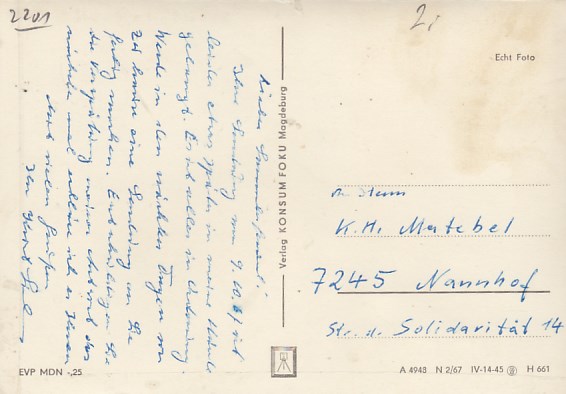 2201
2,
Echt Foto
Lieber Sammlerfreund!
Ihre Sendung vom 9.10.67 ist
leider etwas später in meine Hände
gelangt. Es ist alles in Ordnung.
Werde in den nächsten Tagen von
mir eine Sendung an Sie
fertig machen. Entschuldigen Sie
die Verspätung meiner Antwort das
nächste mal
Mit vielen Grüßen
Ihr Horst
Verlag KONSUM FOKU Magdeburg
Herrn
K. H. Matebel
7245 Naunhof
Str. d. Solidarität 14
EVP MDN -,25
A 4943 N 2/67 IV-14-45 H 661